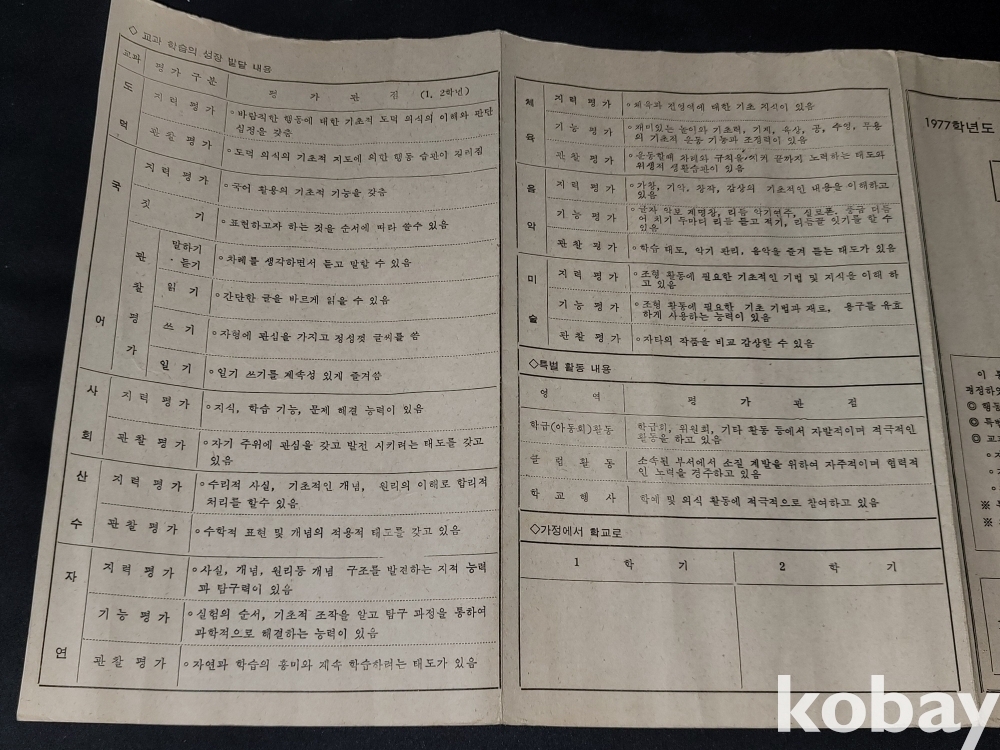 ◇ 교과 학습의 성장 발달 내용
교과 평가 구분 평 가 관 점 (1, 2학년)
도덕
지력 평가 ○ 바람직한 행동에 대한 기초적 도덕 의식의 이해와 판단
심정을 갖춤
관찰 평가 ○ 도덕 의식의 기초적 지도에 의한 행동 습관이 길러짐
국어
지력 평가 ○ 국어 활용의 기초적 기능을 갖춤
짓 기 ○ 표현하고자 하는 것을 순서에 따라 쓸수 있음
관찰 평가
말하기
· 듣기 ○ 차례를 생각하면서 듣고 말할 수 있음
읽 기 ○ 간단한 글을 바르게 읽을 수 있음
쓰 기 ○ 자형에 관심을 가지고 정성껏 글씨를 씀
일 기 ○ 일기 쓰기를 계속성 있게 즐겨씀
사회
지력 평가 ○ 지식, 학습 기능, 문제 해결 능력이 있음
관찰 평가 ○ 자기 주위에 관심을 갖고 발전 시키려는 태도를 갖고
있음
산수
지력 평가 ○ 수리적 사실, 기초적인 개념, 원리의 이해로 합리적
처리를 할수 있음
관찰 평가 ○ 수학적 표현 및 개념의 적용적 태도를 갖고 있음
자연
지력 평가 ○ 사실, 개념, 원리등 개념 구조를 발전하는 지적 능력
과 탐구력이 있음
기능 평가 ○ 실험의 순서, 기초적 조작을 알고 탐구 과정을 통하여
과학적으로 해결하는 능력이 있음
관찰 평가 ○ 자연과 학습의 흥미와 계속 학습하려는 태도가 있음
체육
지력 평가 ○ 체육과 전영역에 대한 기초 지식이 있음
기능 평가 ○ 재미있는 놀이와 기초력, 기계, 육상, 공, 수영, 무용
의 기초적 운동 기능과 조정력이 있음
관찰 평가 ○ 운동할때 차례와 규칙을 지켜 끝까지 노력하는 태도와
위생적 생활습관이 있음
음악
지력 평가 ○ 가창, 기악, 창작, 감상의 기초적인 내용을 이해하고
있음
기능 평가 ○ 글자 악보 계명창, 리듬 악기연주, 실로폰.
두마디 리듬 듣고 적기, 리듬꼴 잇기를 할 수
있음
관찰 평가 ○ 학습 태도, 악기 관리, 음악을 즐겨 듣는 태도가 있음
미술
지력 평가 ○ 조형 활동에 필요한 기초적인 기법 및 지식을 이해 하
고 있음
기능 평가 ○ 조형 활동에 필요한 기초 기법과 재료, 용구를 유효
하게 사용하는 능력이 있음
관찰 평가 ○ 자타의 작품을 비교 감상할 수 있음
◇특별 활동 내용
영 역 평 가 관 점
학급(아동회)활동 학급회, 위원회, 기타 활동 등에서 자발적이며 적극적인
활동을 하고 있음
클럽 활동 소속된 부서에서 소질 계발을 위하여 자주적이며 협력적
인 노력을 경주하고 있음
학교 행사 학예 및 의식 활동에 적극적으로 참여하고 있음
◇가정에서 학교로
1 학 기 2 학 기
1977학년도
이
평정하였
◎ 행동
◎ 특별
◎ 교과
kobay